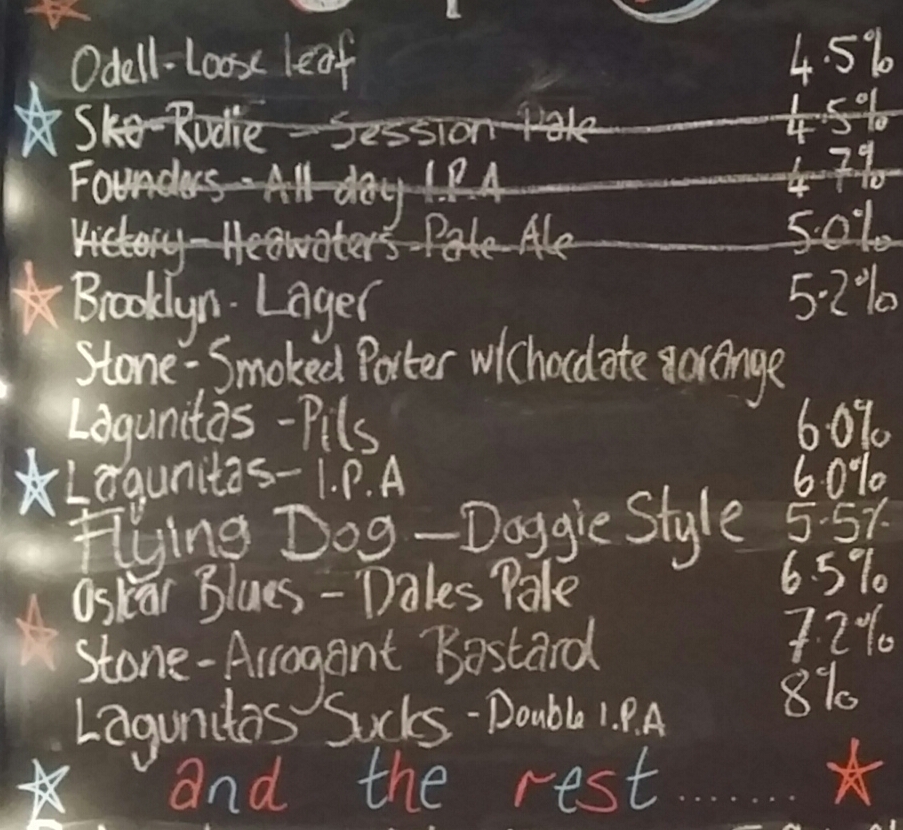 Odell-Loose leaf 4.5%
Ska-Rudie - Session Pale 4.5%
Founders - All day I.P.A 4.7%
Victory-Heawaters-Pale Ale 5.0%
Brooklyn- Lager 5.2%
Stone-Smoked Porter w/Chocolate & orange
Lagunitas -Pils 6.0%
Lagunitas- I.P.A 6.0%
Flying Dog -Doggie Style 5.5%
Oskar Blues - Dales Pale 6.5%
Stone-Arrogant Bastard 7.2%
Lagunitas Sucks -Double I.P.A 8%
and the rest.......